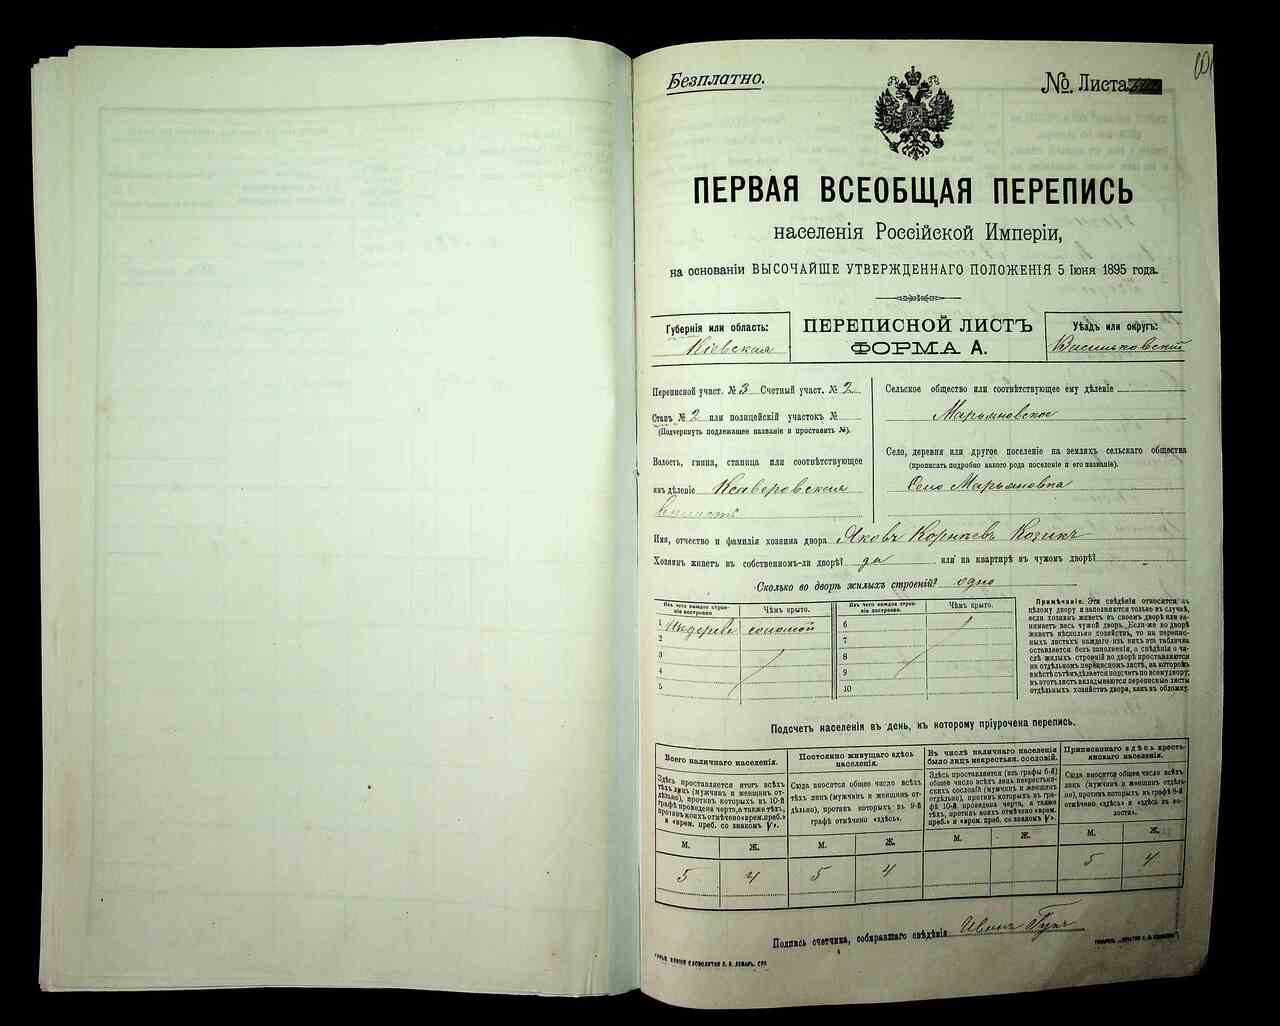 Безплатно.
№. Листа
ПЕРВАЯ ВСЕОБЩАЯ ПЕРЕПИСЬ
населенія Россійской Имперіи,
на основаніи ВЫСОЧАЙШЕ УТВЕРЖДЕННАГО ПОЛОЖЕНІЯ 5 Іюня 1895 года.
Губернія или область:
Кіевская
ПЕРЕПИСНОЙ ЛИСТЪ
ФОРМА А.
Уѣздъ или округъ:
Васильковскій
Переписной участ. № 3 Счетный участ. № 2
Станъ № 2 или полицейскій участокъ №
(Подчеркнуть подлежащее названіе и проставить №).
Волость, гмина, станица или соотвѣтствующее
имъ дѣленіе Ксаверовская
волость
Сельское общество или соотвѣтствующее ему дѣленіе
Марьяновское
Село, деревня или другое поселеніе на земляхъ сельскаго общества
(прописать подробно какого рода поселеніе и его названіе).
Село Марьяновка
Имя, отчество и фамилія хозяина двора Яковъ Корнѣевъ Козикъ
Хозяинъ живетъ въ собственномъ-ли дворѣ? да или на квартирѣ въ чужомъ дворѣ?
Сколько во дворѣ жилыхъ строеній? одно
Изъ чего каждое строеніе построено
Чѣмъ крыто.
1 Из дерева соломой
2
3
4
5
Изъ чего каждое строеніе построено
Чѣмъ крыто.
6
7
8
9
10
Примѣчаніе. Эти свѣдѣнія относятся къ
цѣлому двору и заполняются только въ случаѣ,
если хозяинъ живетъ въ своемъ дворѣ или занимаетъ
весь чужой дворъ. Если-же во дворѣ
живетъ нѣсколько хозяйствъ, то на переписныхъ
листахъ каждаго изъ нихъ эта табличка
оставляется безъ заполненія, а свѣдѣнія о числѣ
жилыхъ строеній во дворѣ проставляются
на отдѣльномъ переписномъ листѣ, на которомъ
вмѣстѣ съ тѣмъ дѣлается подсчетъ по всему двору;
въ этотъ листъ вкладываются переписные листы
отдѣльныхъ хозяйствъ двора, какъ въ обложку.
Подсчетъ населенія въ день, къ которому пріурочена перепись.
Всего наличнаго населенія.
Здѣсь проставляется итогъ всѣхъ
тѣхъ лицъ (мужчинъ и женщинъ отдѣльно),
противъ которыхъ въ 10-й
графѣ проведена черта, а также тѣхъ,
противъ коихъ отмѣчено «врем. преб.»
и «врем. преб. со знакомъ V».
Постоянно живущаго здѣсь
населенія.
Сюда вносится общее число всѣхъ
тѣхъ лицъ (мужчинъ и женщинъ отдѣльно),
противъ которыхъ въ 9-й
графѣ отмѣчено «здѣсь».
Въ числѣ наличнаго населенія
было лицъ некрестьян. сословій.
Здѣсь проставляется (изъ графы 6-й)
общее число всѣхъ лицъ некрестьянскихъ
сословій (мужчинъ и женщинъ
отдѣльно), противъ которыхъ въ графѣ
10-й проведена черта, а также
тѣхъ, противъ коихъ отмѣчено «врем.
преб.» и «врем. преб. со знакомъ V».
Приписаннаго здѣсь крестьянскаго
населенія.
Сюда вносится общее число всѣхъ
лицъ (мужчинъ и женщинъ отдѣльно),
противъ которыхъ въ графѣ 8-й
отмѣчено «здѣсь» и «здѣсь въ волости».
М. Ж. М. Ж. М. Ж. М. Ж.
5 4 5 4 5 4
Подпись счетчика, собиравшаго свѣдѣнія Иванъ Гукъ